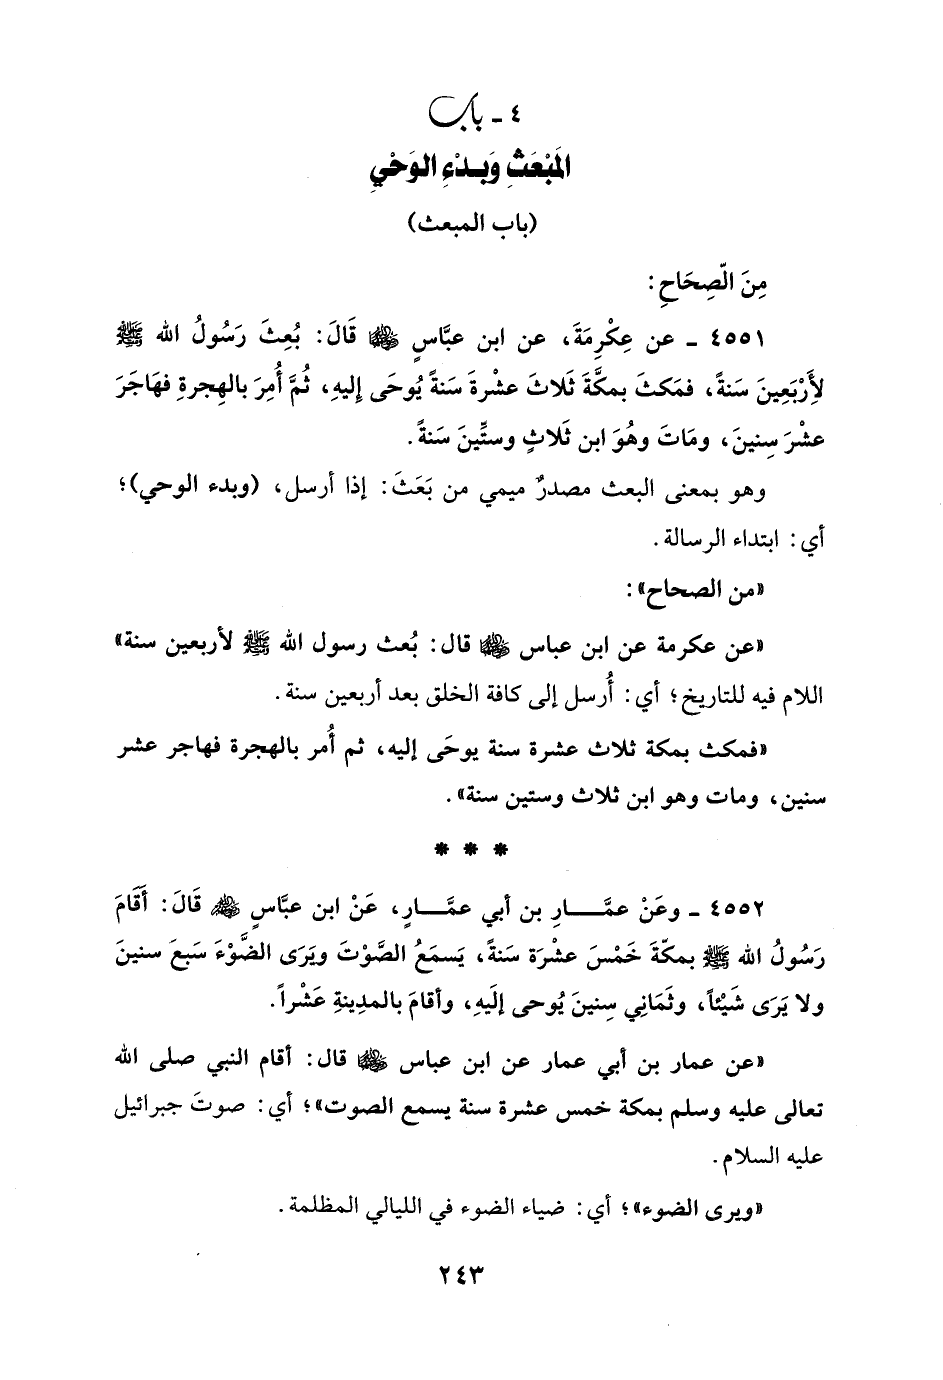 ٤ - باب
المَبْعَثِ وَبَدْءِ الوَحْيِ
(باب المبعث)
مِنَ الصِّحَاحِ:
٤٥٥١ - عن عِكْرِمَةَ، عن ابن عبَّاسٍ ﵄ قَالَ: بُعِثَ رَسُولُ الله ﷺ
لِأَرْبَعِينَ سَنةً، فمَكثَ بمكَّةَ ثَلاثَ عشْرةَ سَنةً يُوحَى إليهِ، ثُمَّ أُمِرَ بالهِجرةِ فهَاجَرَ
عشْرَ سِنينَ، ومَاتَ وهُوَ ابن ثَلاثٍ وستِّينَ سَنةً.
وهو بمعنى البعث مصدرٌ ميمي من بَعَثَ: إذا أرسل، (وبدء الوحي)؛
أي: ابتداء الرسالة.
«من الصحاح»:
«عن عكرمة عن ابن عباس ﵄ قال: بُعث رسول الله ﷺ لأربعين سنة»
اللام فيه للتاريخ؛ أي: أُرسل إلى كافة الخلق بعد أربعين سنة.
«فمكث بمكة ثلاث عشرة سنة يوحَى إليه، ثم أُمر بالهجرة فهاجر عشر
سنين، ومات وهو ابن ثلاث وستين سنة».
* * *
٤٥٥٢ - وعَنْ عمَّـــارِ بن أبي عمَّـــارٍ، عَنْ ابن عبَّاسٍ ﵄ قَالَ: أَقَامَ
رَسُولُ الله ﷺ بمكَّةَ خَمْسَ عشْرَة سَنةً، يَسمَعُ الصَّوْتَ ويَرَى الضَّوْءَ سَبعَ سنينَ
ولا يَرَى شَيْئاً، وثَمَاني سِنينَ يُوحى إلَيهِ، وأقامَ بالمدِينةِ عَشْراً.
«عن عمار بن أبي عمار عن ابن عباس ﵄ قال: أقام النبي صلى الله
تعالى عليه وسلم بمكة خمس عشرة سنة يسمع الصوت»؛ أي: صوتَ جبرائيل
عليه السلام.
«ويرى الضوء»؛ أي: ضياء الضوء في الليالي المظلمة.
٢٤٣